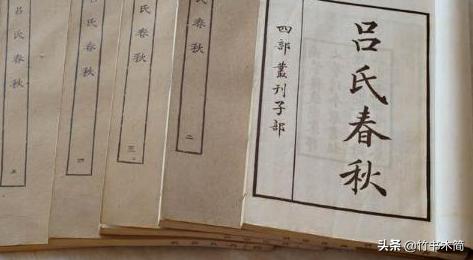 吕氏春秋
四部叢刊子部
氏春秋
二
氏春秋
三
氏春秋
四
吕氏春秋
五
头条 @竹书木简